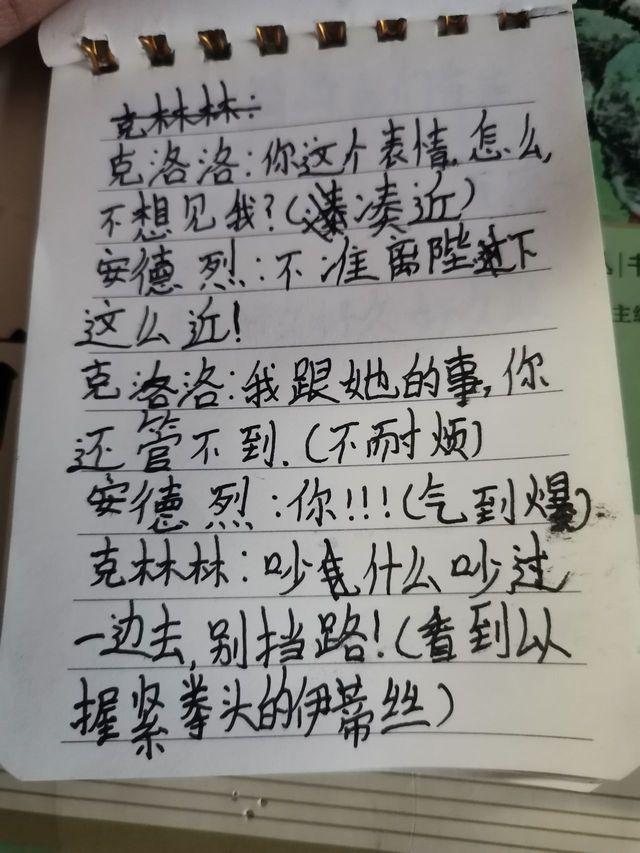 克林林：
克洛洛：你这个表情，怎么，
不想见我？（凑近）
安德烈：不准离陛下
这么近！
克洛洛：我跟她的事，你
还管不到.（不耐烦）
安德烈：你!!!（气到爆）
克林林：吵什么吵过
一边去，别挡路！（看到以
握紧拳头的伊蒂丝）